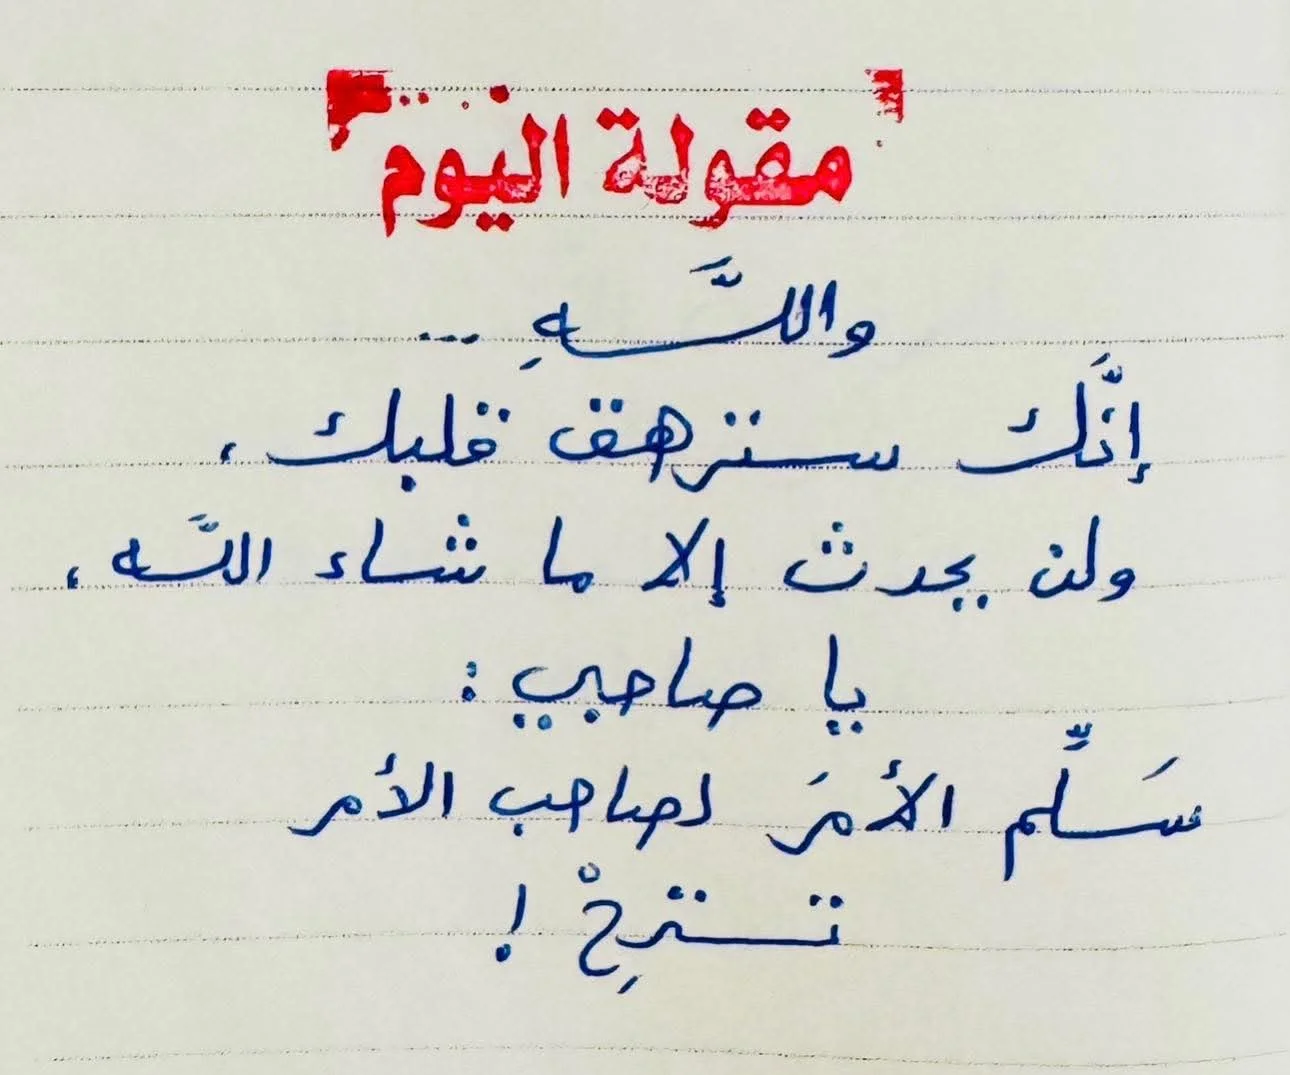 مقولة اليوم
واللَّهِ ...
إنَّك سترهق قلبك ،
ولن يحدث إلا ما شاء اللَّه ،
يا صاحبي :
سَلِّم الأمرَ لصاحب الأمر
تسترِحْ !